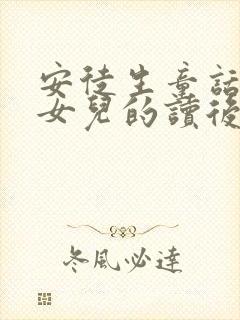 安徒生童話
女兒的讀後
冬風必達